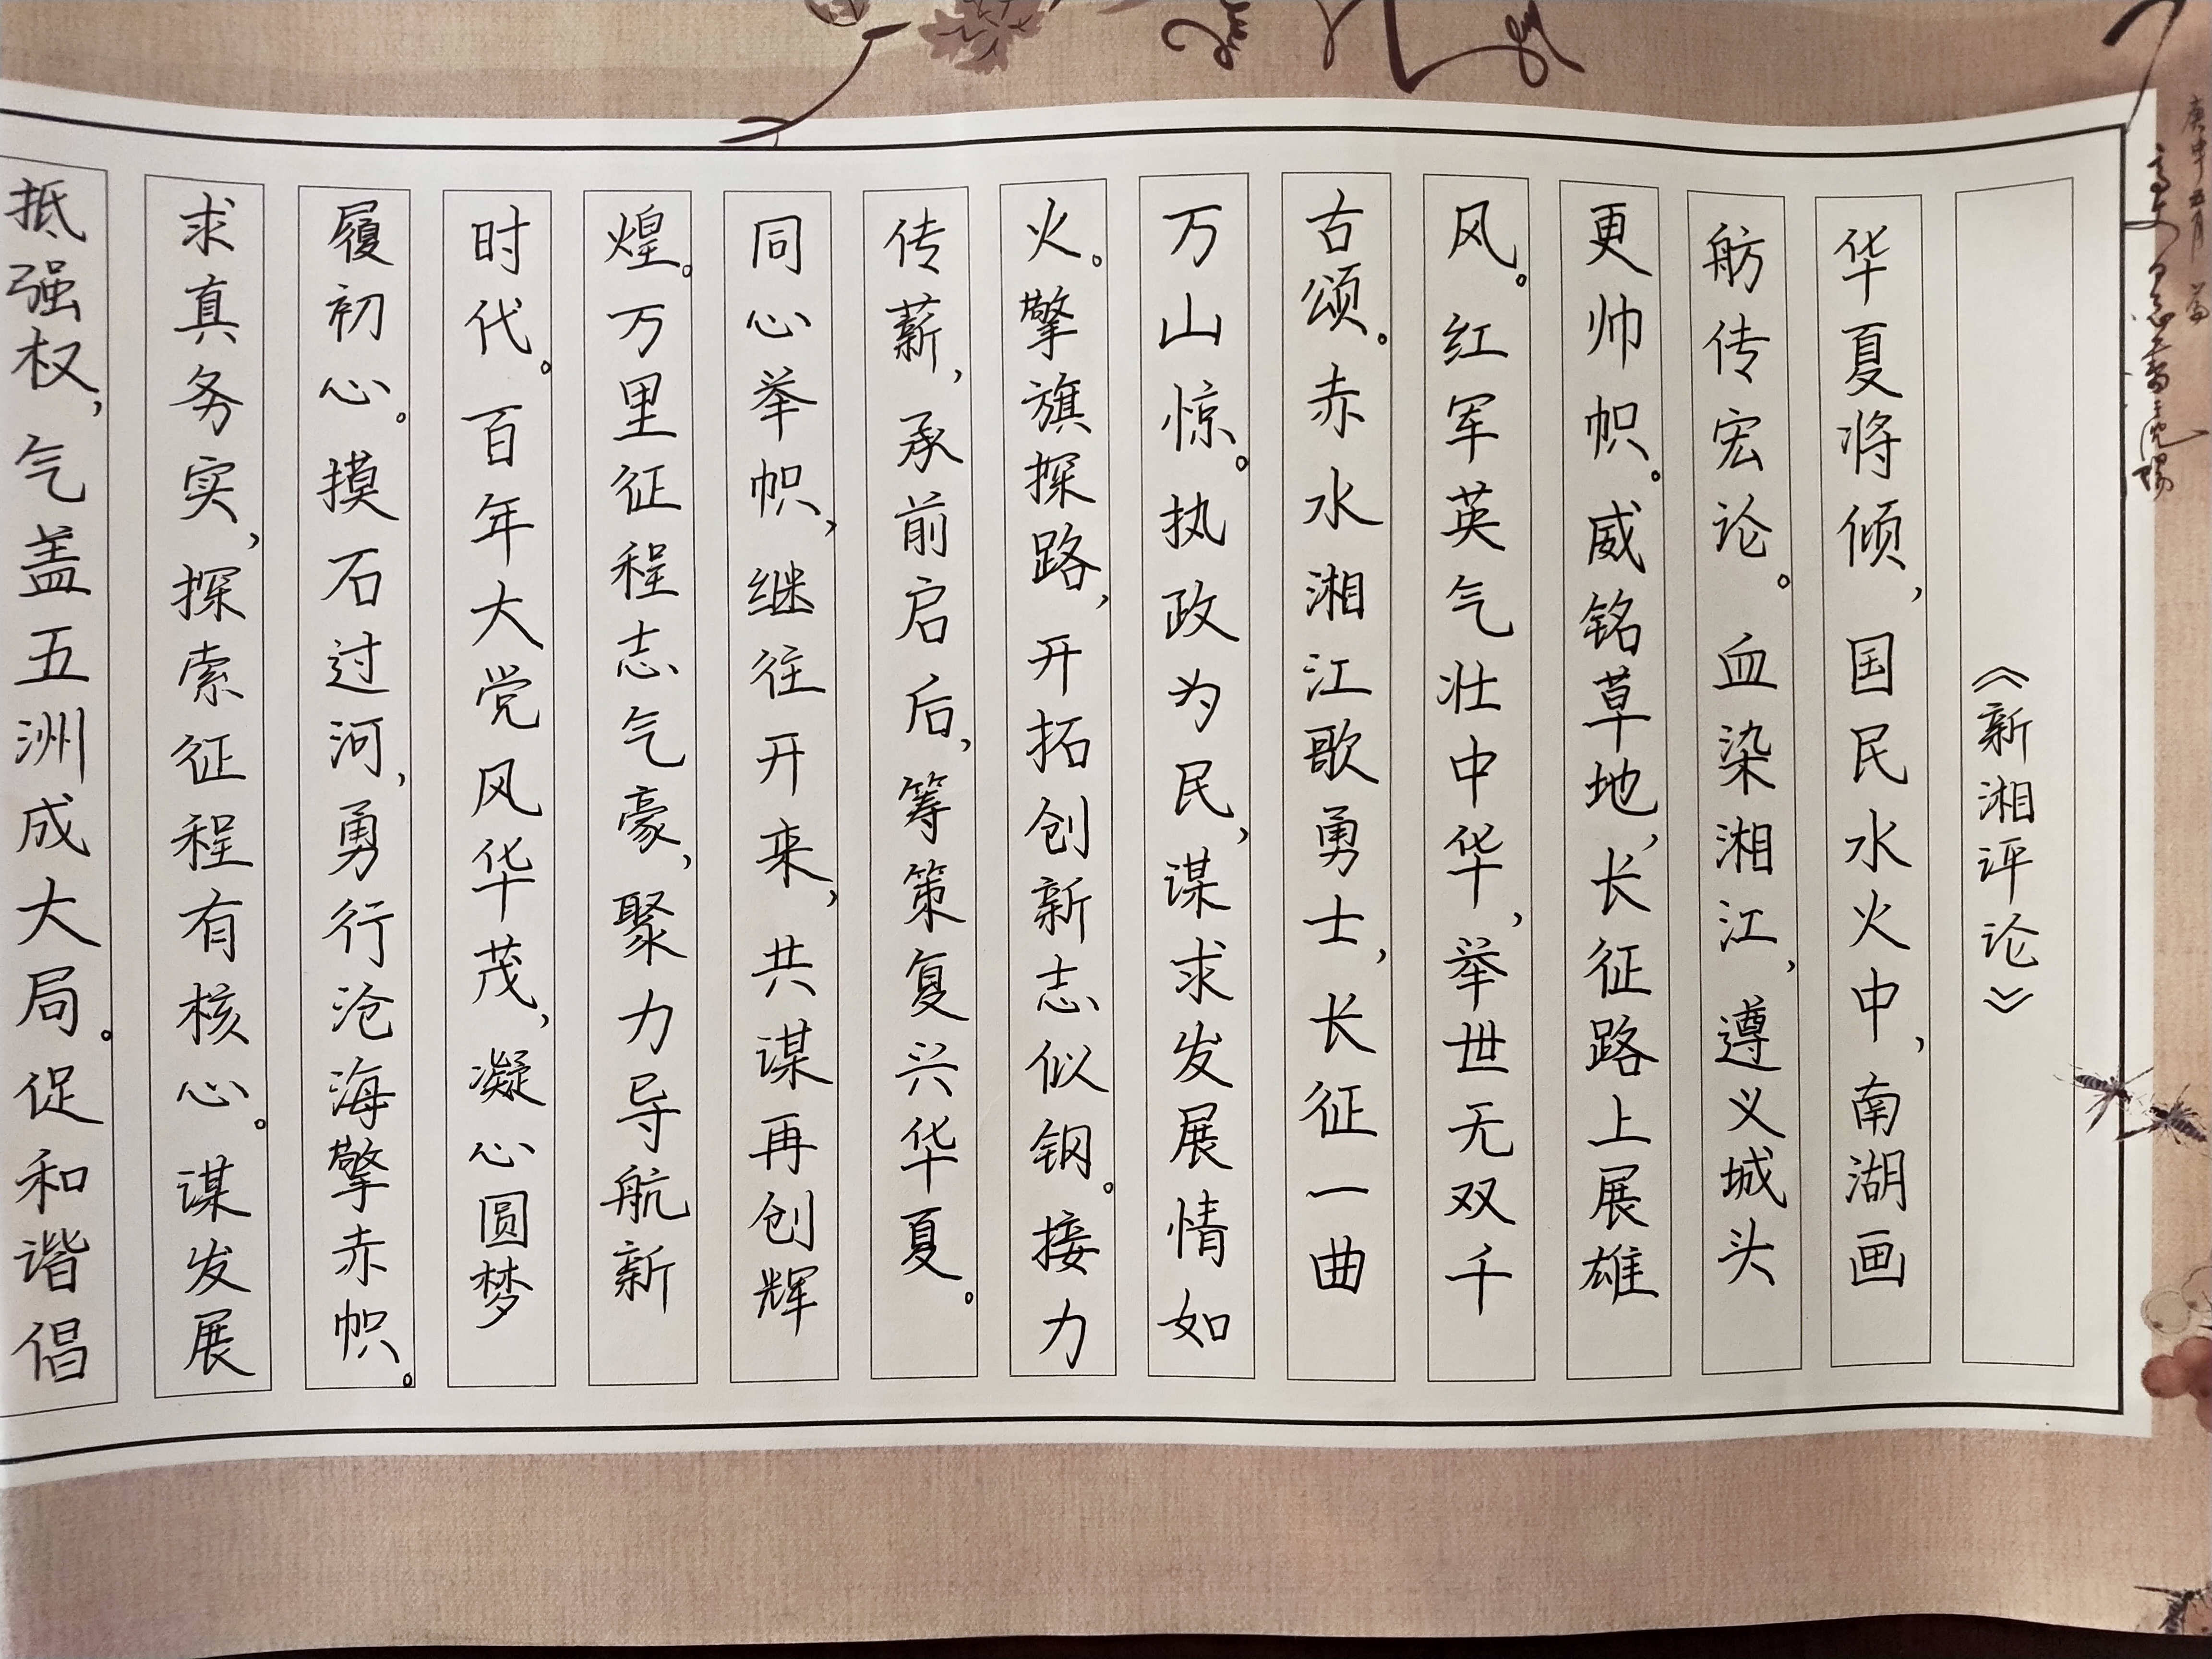 《新湘评论》
华夏将倾,国民水火中,南湖画
舫传宏论。血染湘江,遵义城头
更帅帜。威铭草地,长征路上展雄
风。红军英气壮中华,举世无双千
古颂。赤水湘江歌勇士,长征一曲
万山惊。执政为民,谋求发展情如
火。擎旗探路,开拓创新志似钢。接力
传薪,承前启后,筹策复兴华夏。
同心举帜,继往开来,共谋再创辉
煌。万里征程志气豪,聚力导航新
时代。百年大党风华茂,凝心圆梦
履初心。摸石过河,勇行沧海擎赤帜。
求真务实,探索征程有核心。谋发展
抵强权,气盖五洲成大局。促和谐倡